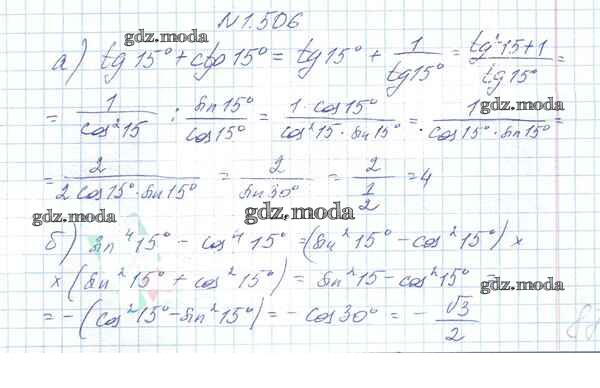 N 1.506
gdz.moda
а) tg 15° + ctg 15° = tg 15° + 1/tg 15° = tg² 15 + 1/tg 15° =
gdz.moda
gdz.moda
= 1/cos² 15 : sin 15°/cos 15° = 1 · cos 15°/cos² 15 · sin 15° = 1/cos 15° · sin 15° =
gdz.moda
= 2/2 cos 15° · sin 15° = 2/sin 30° = 2/1/2 = 4
gdz.moda
gdz.moda
б) sin⁴ 15° - cos⁴ 15° = (sin² 15° - cos² 15°) ×
× (sin² 15° + cos² 15°) = sin² 15 - cos² 15° =
gdz.moda
= -(cos² 15° - sin² 15°) = - cos 30° = - √3/2